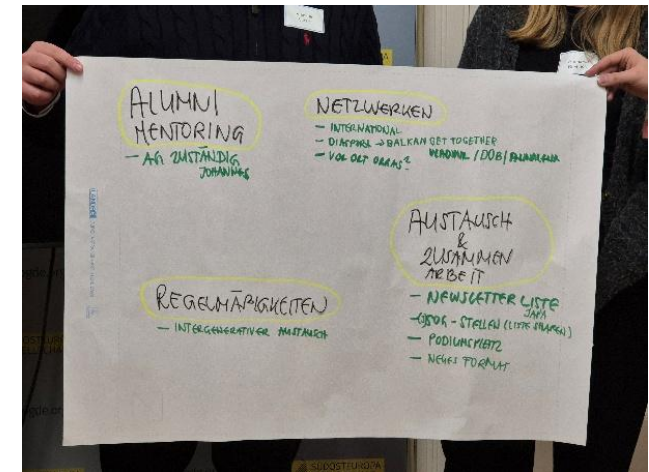 ALUMNI
MENTORING
- AG ZUSTÄNDIG
JOHANNES
NETZWERKEN
- INTERNATIONAL
- DIASPORA → BALKAN GET TOGETHER
- VOR ORT
AUSTAUSCH
&
ZUSAMMEN
ARBEIT
- NEWSLETTER LISTE
JAFA
- STELLEN (LISTE
- PODIUMSPLATZ
- NEUES FORMAT
REGELMÄßIGKEITEN
- INTERGENERATIVER AUSTAUSCH
SÜDOSTEUROPA